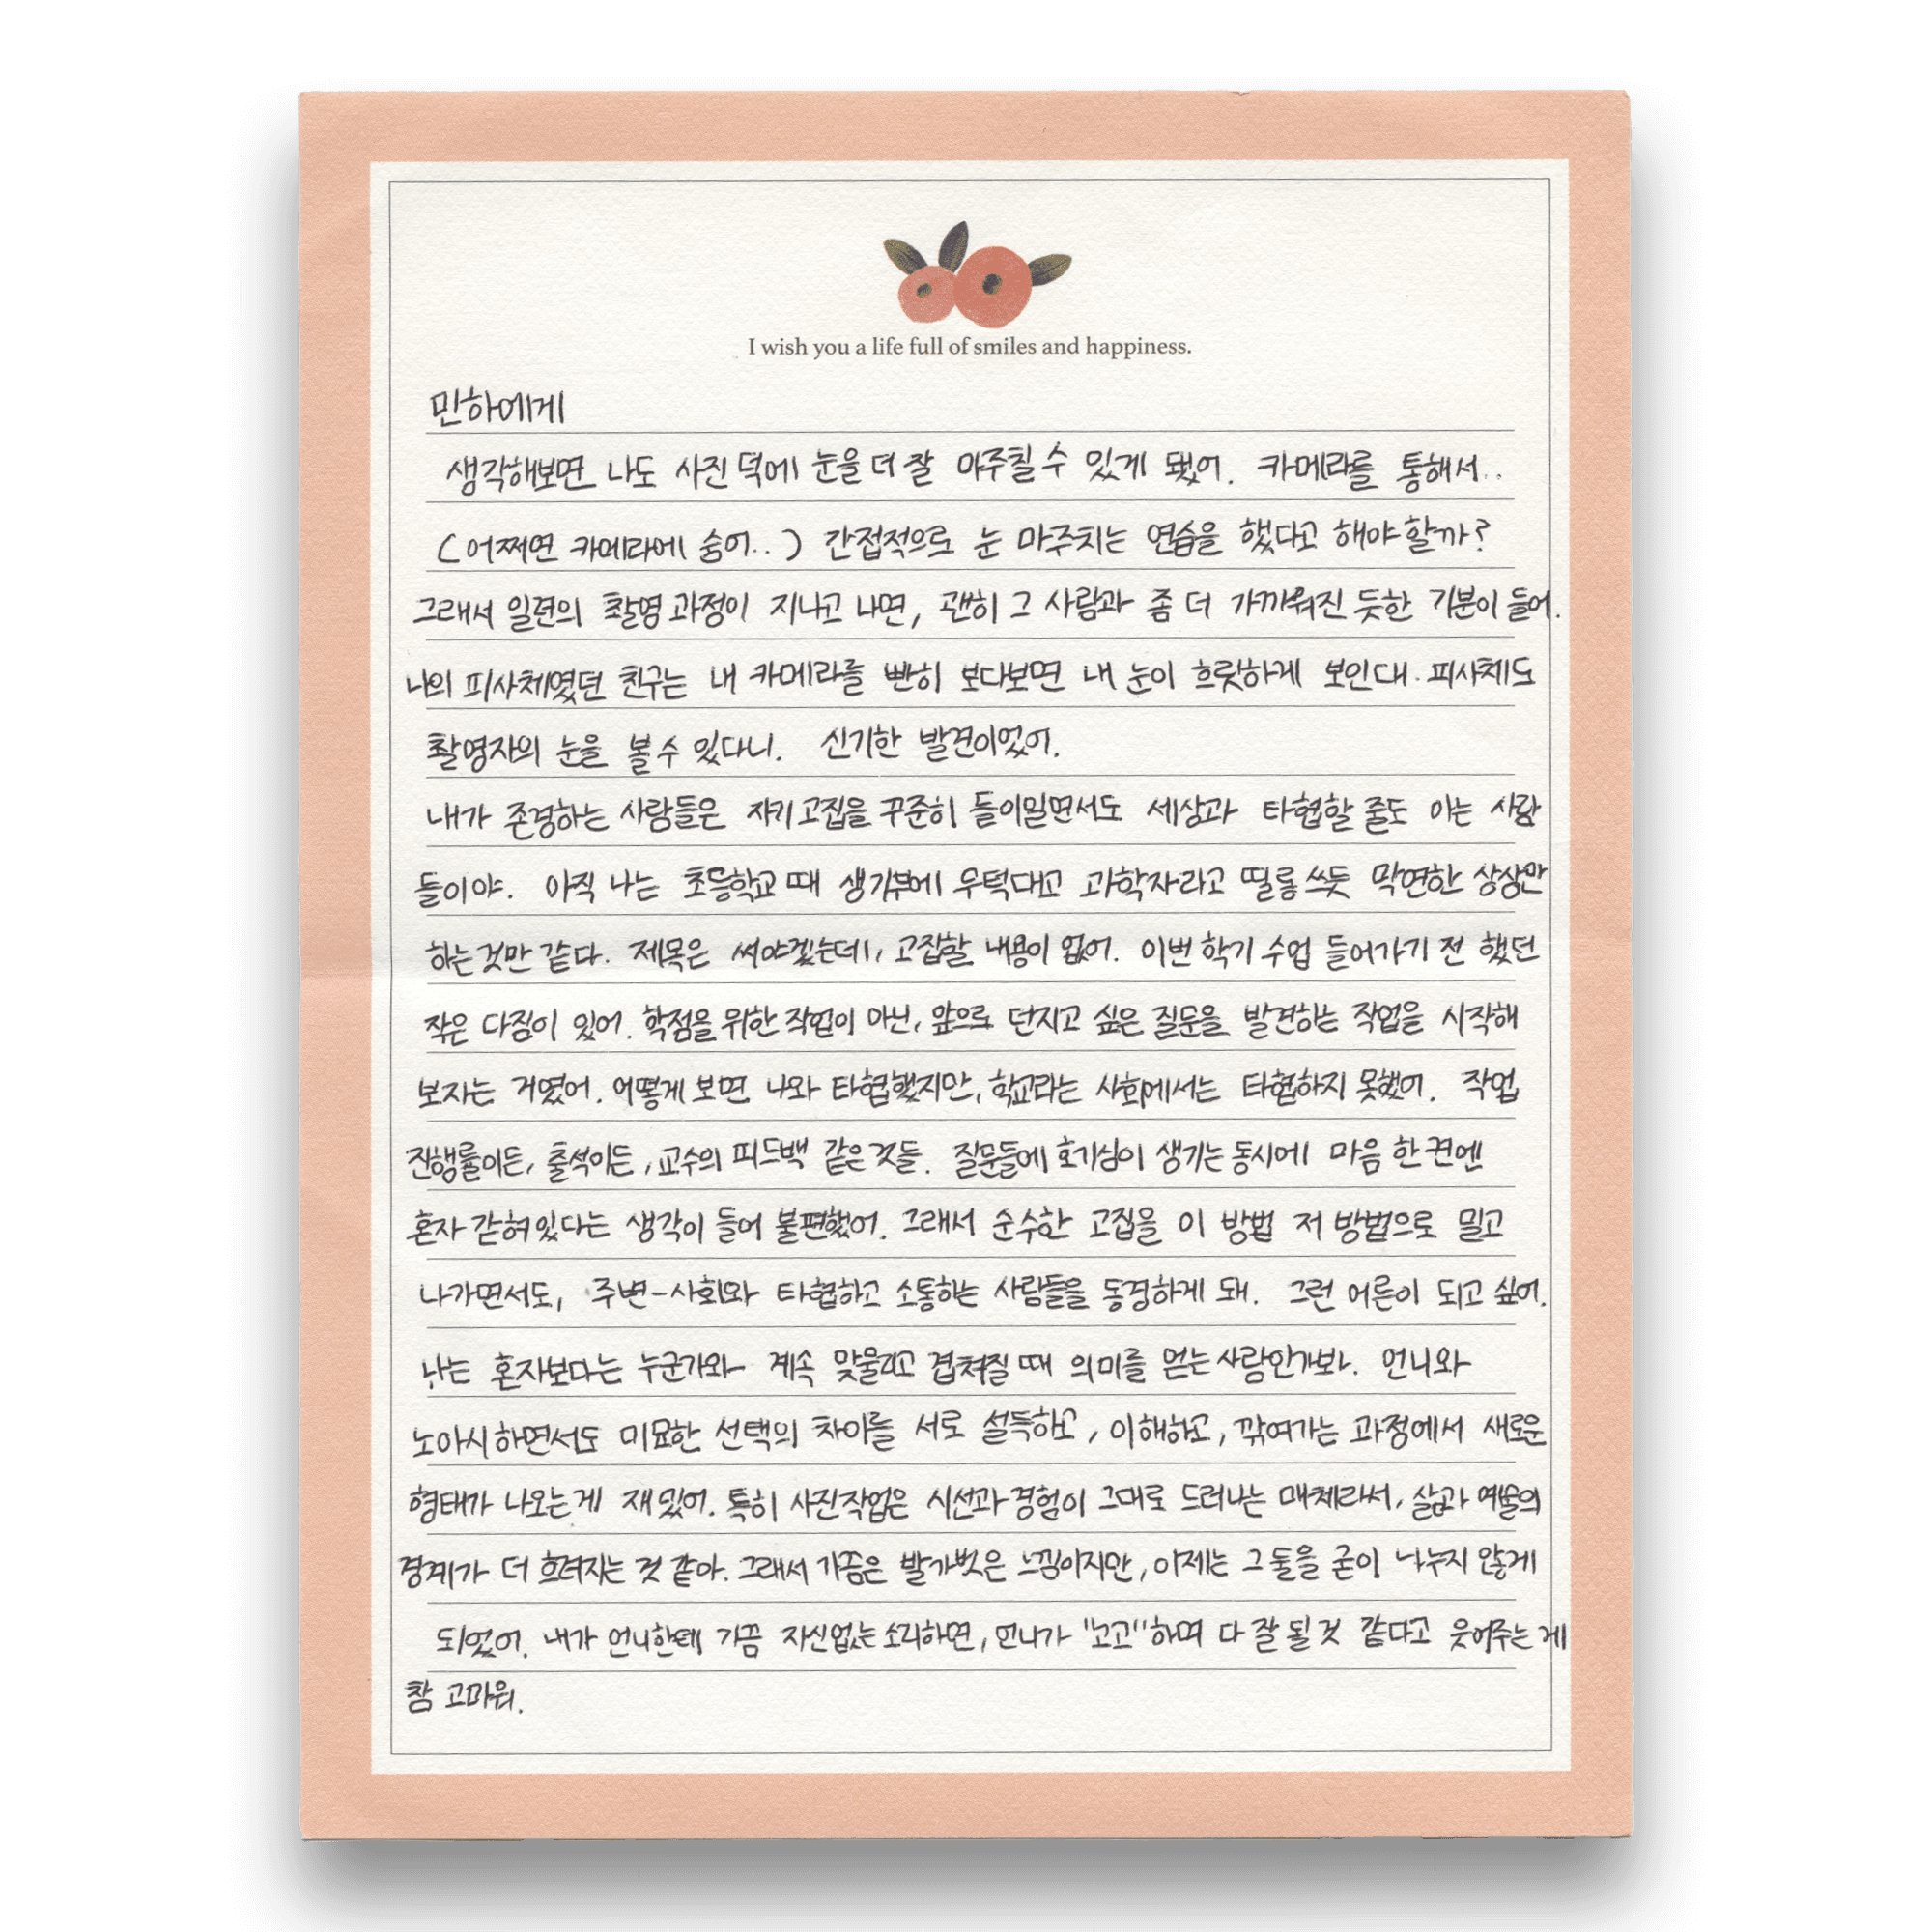 I wish you a life full of smiles and happiness.
민하에게
생각해보면 나도 사진 덕에 눈을 더 잘 마주칠 수 있게 됐어. 카메라를 통해서..
(어쩌면 카메라에 숨어..) 간접적으로 눈 마주치는 연습을 했다고 해야 할까?
그래서 일련의 촬영 과정이 지나고 나면, 괜히 그 사람과 좀 더 가까워진 듯한 기분이 들어.
나의 피사체였던 친구는 내 카메라를 빤히 보다보면 내 눈이 흐릿하게 보인대. 피사체도
촬영자의 눈을 볼 수 있다니. 신기한 발견이었어.
내가 존경하는 사람들은 자기 고집을 꾸준히 들이밀면서도 세상과 타협할 줄도 아는 사람
들이야. 아직 나는 초등학교 때 생기부에 우턱대고 과학자라고 띨롱 쓰듯 막연한 상상만
하는 것만 같다. 제목은 써야겠는데, 고집할 내용이 없어. 이번 학기 수업 들어가기 전 했던
작은 다짐이 있어. 학점을 위한 작업이 아닌, 앞으로 던지고 싶은 질문을 발견하는 작업을 시작해
보자는 거였어. 어떻게 보면 나와 타협했지만, 학교라는 사회에서는 타협하지 못했어. 작업
진행률이든, 출석이든, 교수의 피드백 같은 것들. 질문들에 호기심이 생기는 동시에 마음 한 켠엔
혼자 갇혀있다는 생각이 들어 불편했어. 그래서 순수한 고집을 이 방법 저 방법으로 밀고
나가면서도, 주변-사회와 타협하고 소통하는 사람들을 동경하게 돼. 그런 어른이 되고 싶어.
나는 혼자보다는 누군가와 계속 맞물리고 겹쳐질 때 의미를 얻는 사람인가봐. 언니와
노아시하면서도 미묘한 선택의 차이를 서로 설득하고, 이해하고, 깎여가는 과정에서 새로운
형태가 나오는 게 재밌어. 특히 사진작업은 시선과 경험이 그대로 드러나는 매체라서, 삶과 예술의
경계가 더 흐려지는 것 같아. 그래서 가끔은 발가벗은 느낌이지만, 이제는 그 둘을 굳이 나누지 않게
되었어. 내가 언니한테 가끔 자신없는 소리하면, 언니가 "노고"하며 다 잘 될 것 같다고 웃어주는 게
참 고마워.